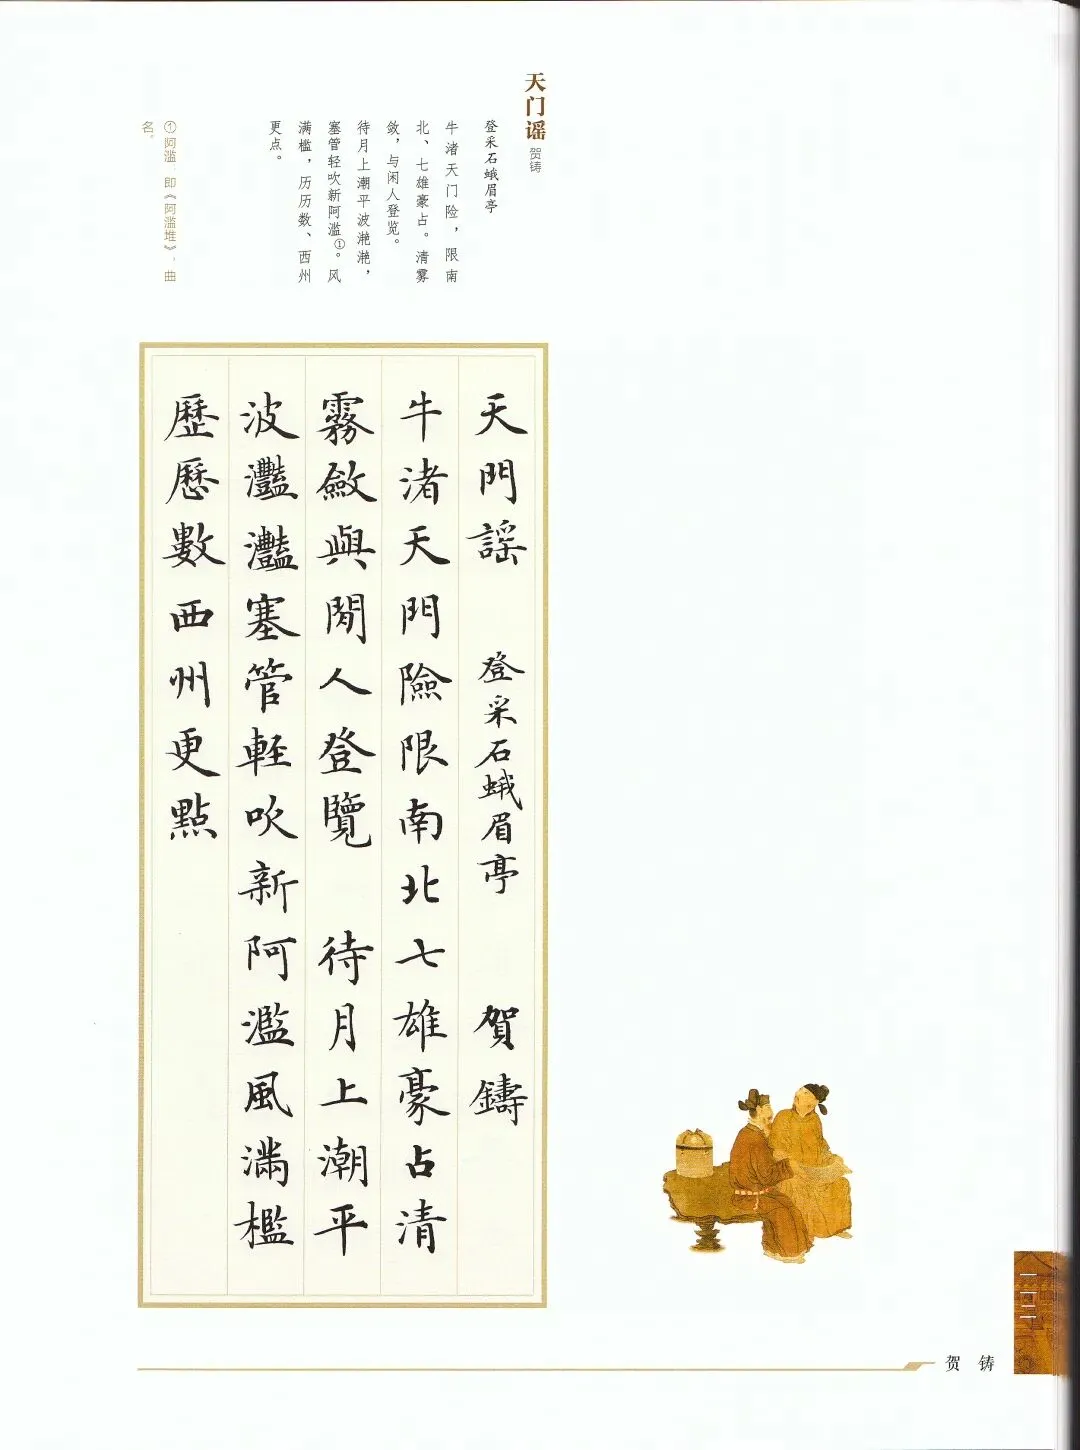 天门谣
贺铸
登采石蛾眉亭
牛渚天门险，限南
北、七雄豪占。清雾
敛，与闲人登览。
待月上潮平波滟滟，
塞管轻吹新阿滥①。风
满槛，历历数、西州
更点。
①阿滥，即《阿滥堆》，曲
名。
天門謡 登采石蛾眉亭 賀鑄
牛渚天門險限南北七雄豪占清
霧斂與閒人登覽 待月上潮平
波灩灩塞管輕吹新阿濫風滿檻
歷歷數西州更點
贺 铸